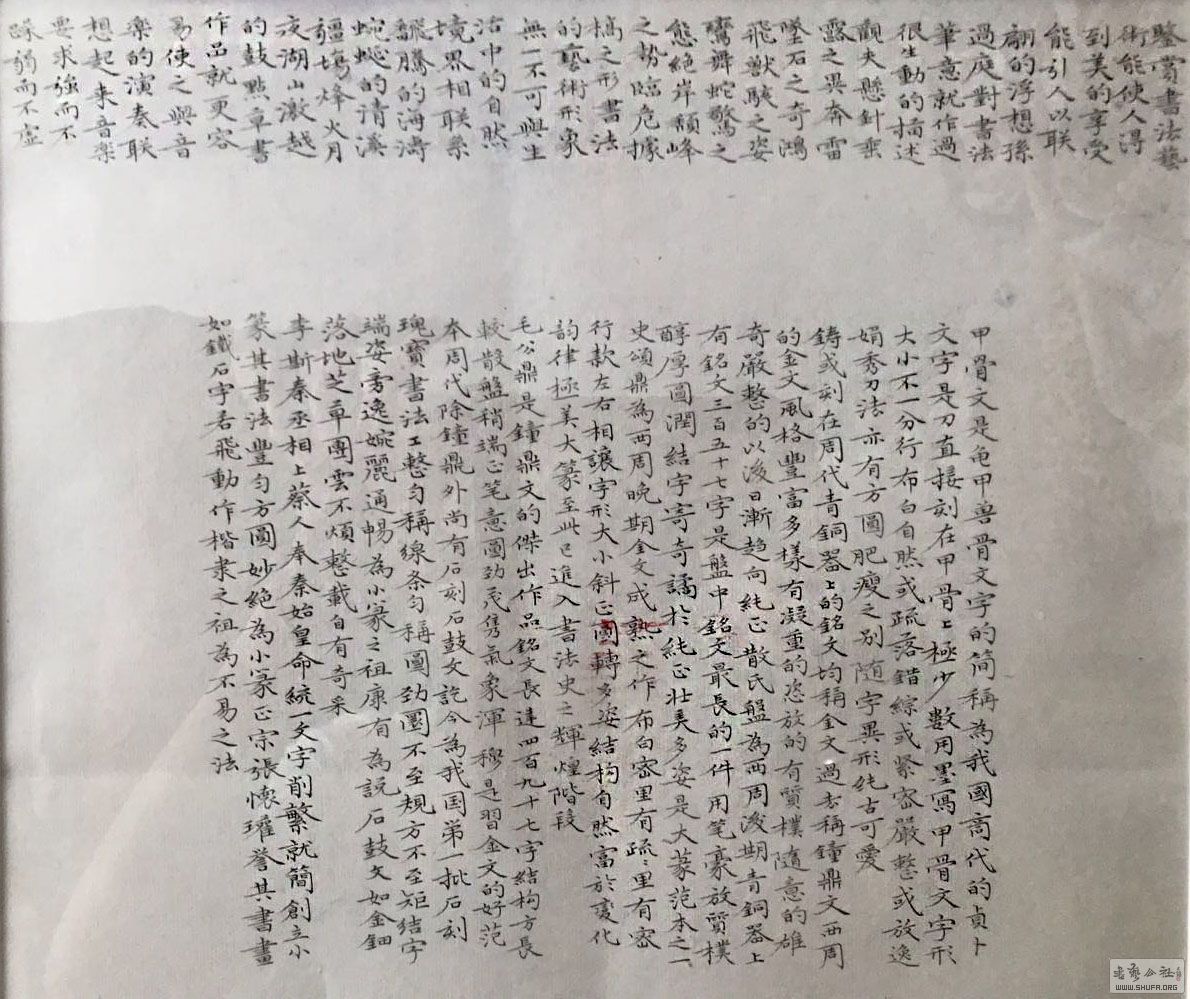 鑒賞書法藝
術能使人得
到美的享受
能引人以联
翩的浮想孫
過庭對書法
筆意就作過
很生動的描述
觀夫懸針垂
露之異奔雷
墜石之奇鴻
飛獸駭之姿
鸞舞蛇驚之
態絕岸頹峰
之勢臨危據
槁之形書法
的藝術形象
無一不可與生
活中的自然
境界相联系
飜騰的海濤
蜿蜒的清溪
疆場烽火月
夜湖山激越
的鼓點草書
作品就更容
易使之與音
樂的演奏联
想起来音樂
要求強而不
躁弱而不虛
甲骨文是龟甲兽骨文字的简稱為我國商代的貞卜
文字是刀直接刻在甲骨上極少數用墨寫甲骨文字形
大小不一分行布白自然或疏落錯綜或紧密嚴整或放逸
娟秀刀法亦有方圓肥瘦之别随字異形純古可愛
鑄或刻在周代青銅器上的銘文均稱金文過去稱鐘鼎文西周
的金文風格豐富多樣有凝重的恣放的有質樸隨意的雄
奇嚴整的以後日漸趋向純正散氏盤為西周後期青銅器上
有銘文三百五十七字是盤中銘文最長的一件用笔豪放質樸
醇厚圓潤結字寄奇譎於純正壮美多姿是大篆范本之一
史頌鼎為西周晚期金文成熟之作布白密里有疏疏里有密
行款左右相讓字形大小斜正圓轉多姿結构自然富於变化
韵律極美大篆至此已進入書法史之輝煌階段
毛公鼎是鐘鼎文的傑出作品銘文長達四百九十七字結构方長
較散盤稍端正笔意圓劲茂隽氣象渾穆是習金文的好范
本周代除鐘鼎外尚有石刻石鼓文訖今為我国第一批石刻
瑰寶書法工整匀稱線条匀稱圓劲圓不至規方不至矩結字
端姿旁逸婉麗通暢為小篆之祖康有為説石鼓文如金鈿
落地芝草團雲不煩整裁自有奇采
李斯秦丞相上蔡人奉秦始皇命統一文字削繁就簡創立小
篆其書法豐匀方圓妙絕為小篆正宗張懷瓘誉其書畫
如鐵石字若飛動作楷隶之祖為不易之法
書藝公社
WWW.SHUFA.ORG